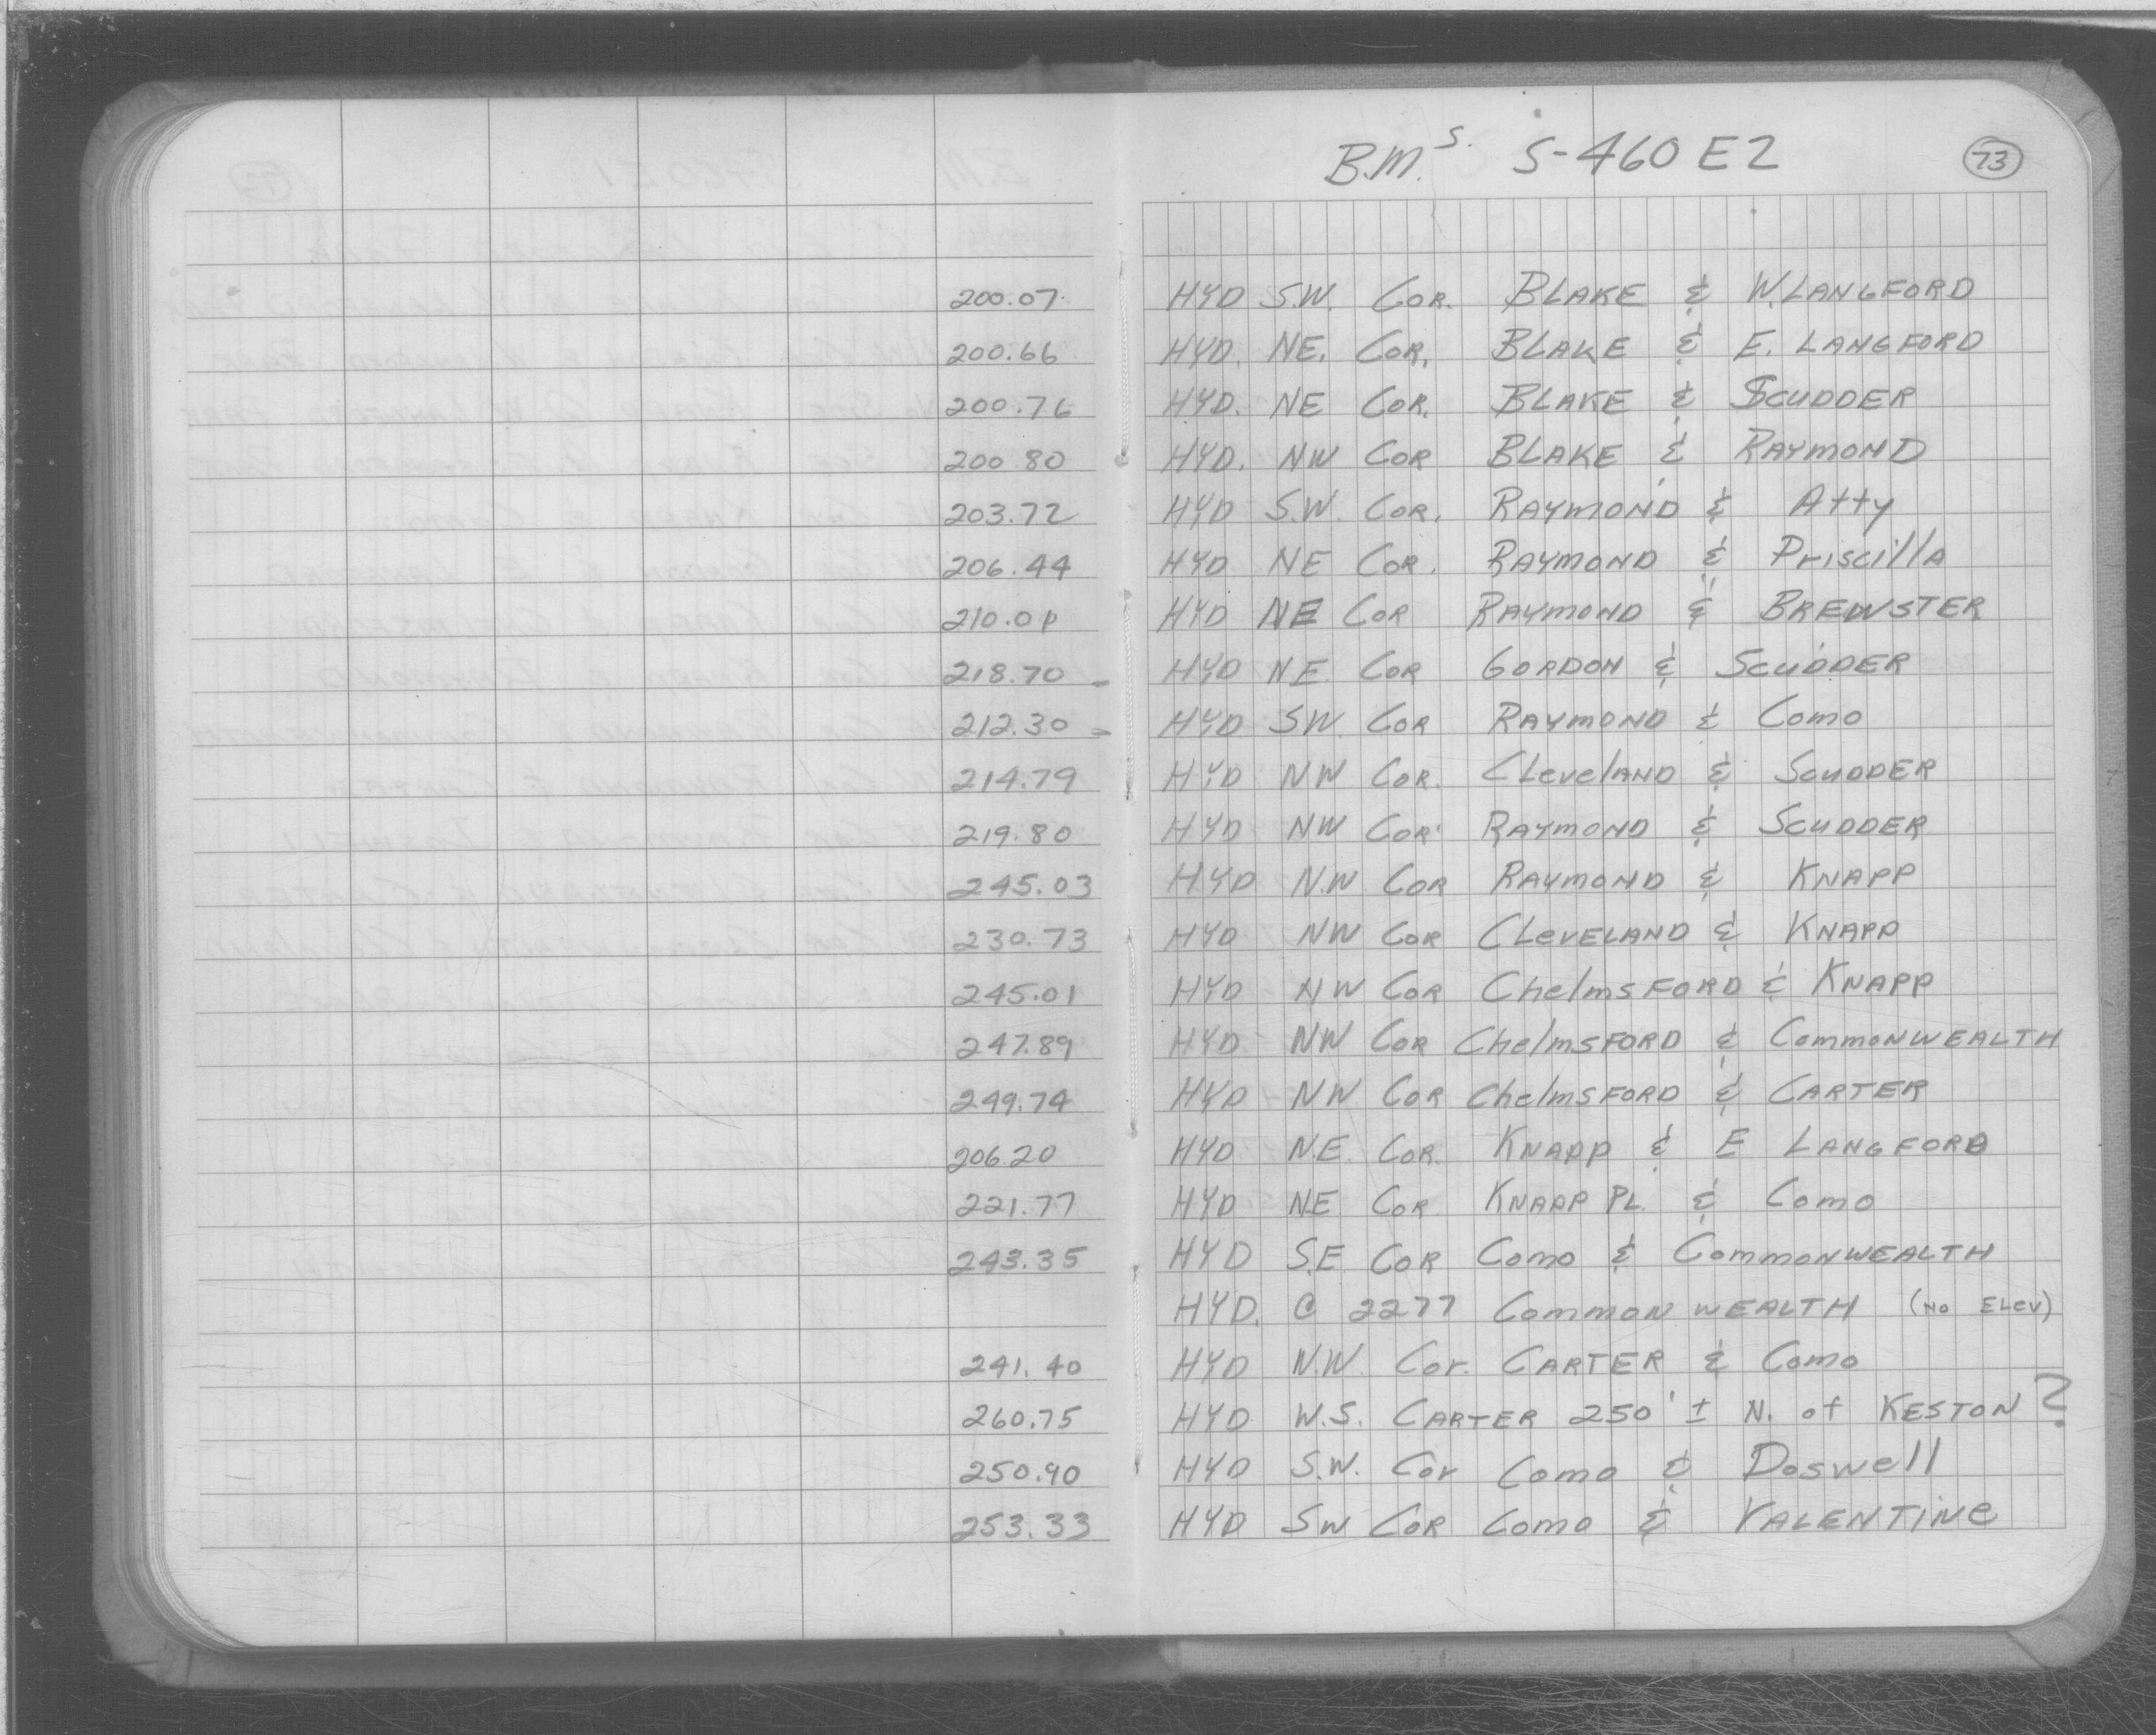 B.M.s. S-460 E2 73
200.07 HYD S.W. COR. BLAKE & W. LANGFORD
200.66 HYD. NE. COR. BLAKE & E. LANGFORD
200.76 HYD. NE COR. BLAKE & SCUDDER
200 80 HYD. NW COR BLAKE & RAYMOND
203.72 HYD S.W. COR. RAYMOND & Atty
206.44 HYD NE COR. RAYMOND & Priscilla
HYD NE COR RAYMOND & BREWSTER
218.70 - HYD NE COR GORDON & SCUDDER
212.30 = HYD SW. COR RAYMOND & Como
214.79 HYD NW COR. CLevelAND & SCUDDER
219.80 HYD NW COR RAYMOND & SCUDDER
245.03 HYD N.W COR RAYMOND & KNAPP
230.73 HYD NW COR CLeVELAND & KNAPP
245.01 HYD NW COR ChelmsFORD & KNAPP
247.89 HYD NW COR ChelmsFORD & COMMONWEALTH
249.74 HYD NW COR ChelmsFORD & CARTER
206.20 HYD N.E. COR. KNAPP & E LANGFORD
221.77 HYD NE COR. KNAPP PL. & Como
243.35 HYD S.E COR Como & COMMONWEALTH
HYD. @ 2277 COMMONWEALTH (NO ELEV)
241.40 HYD N.W. Cor. CARTER & Como
260.75 HYD W.S. CARTER 250' ± N. of KESTON ?
250.90 HYD S.W. Cor Como & Doswell
253.33 HYD SW COR Como & VALENTINe